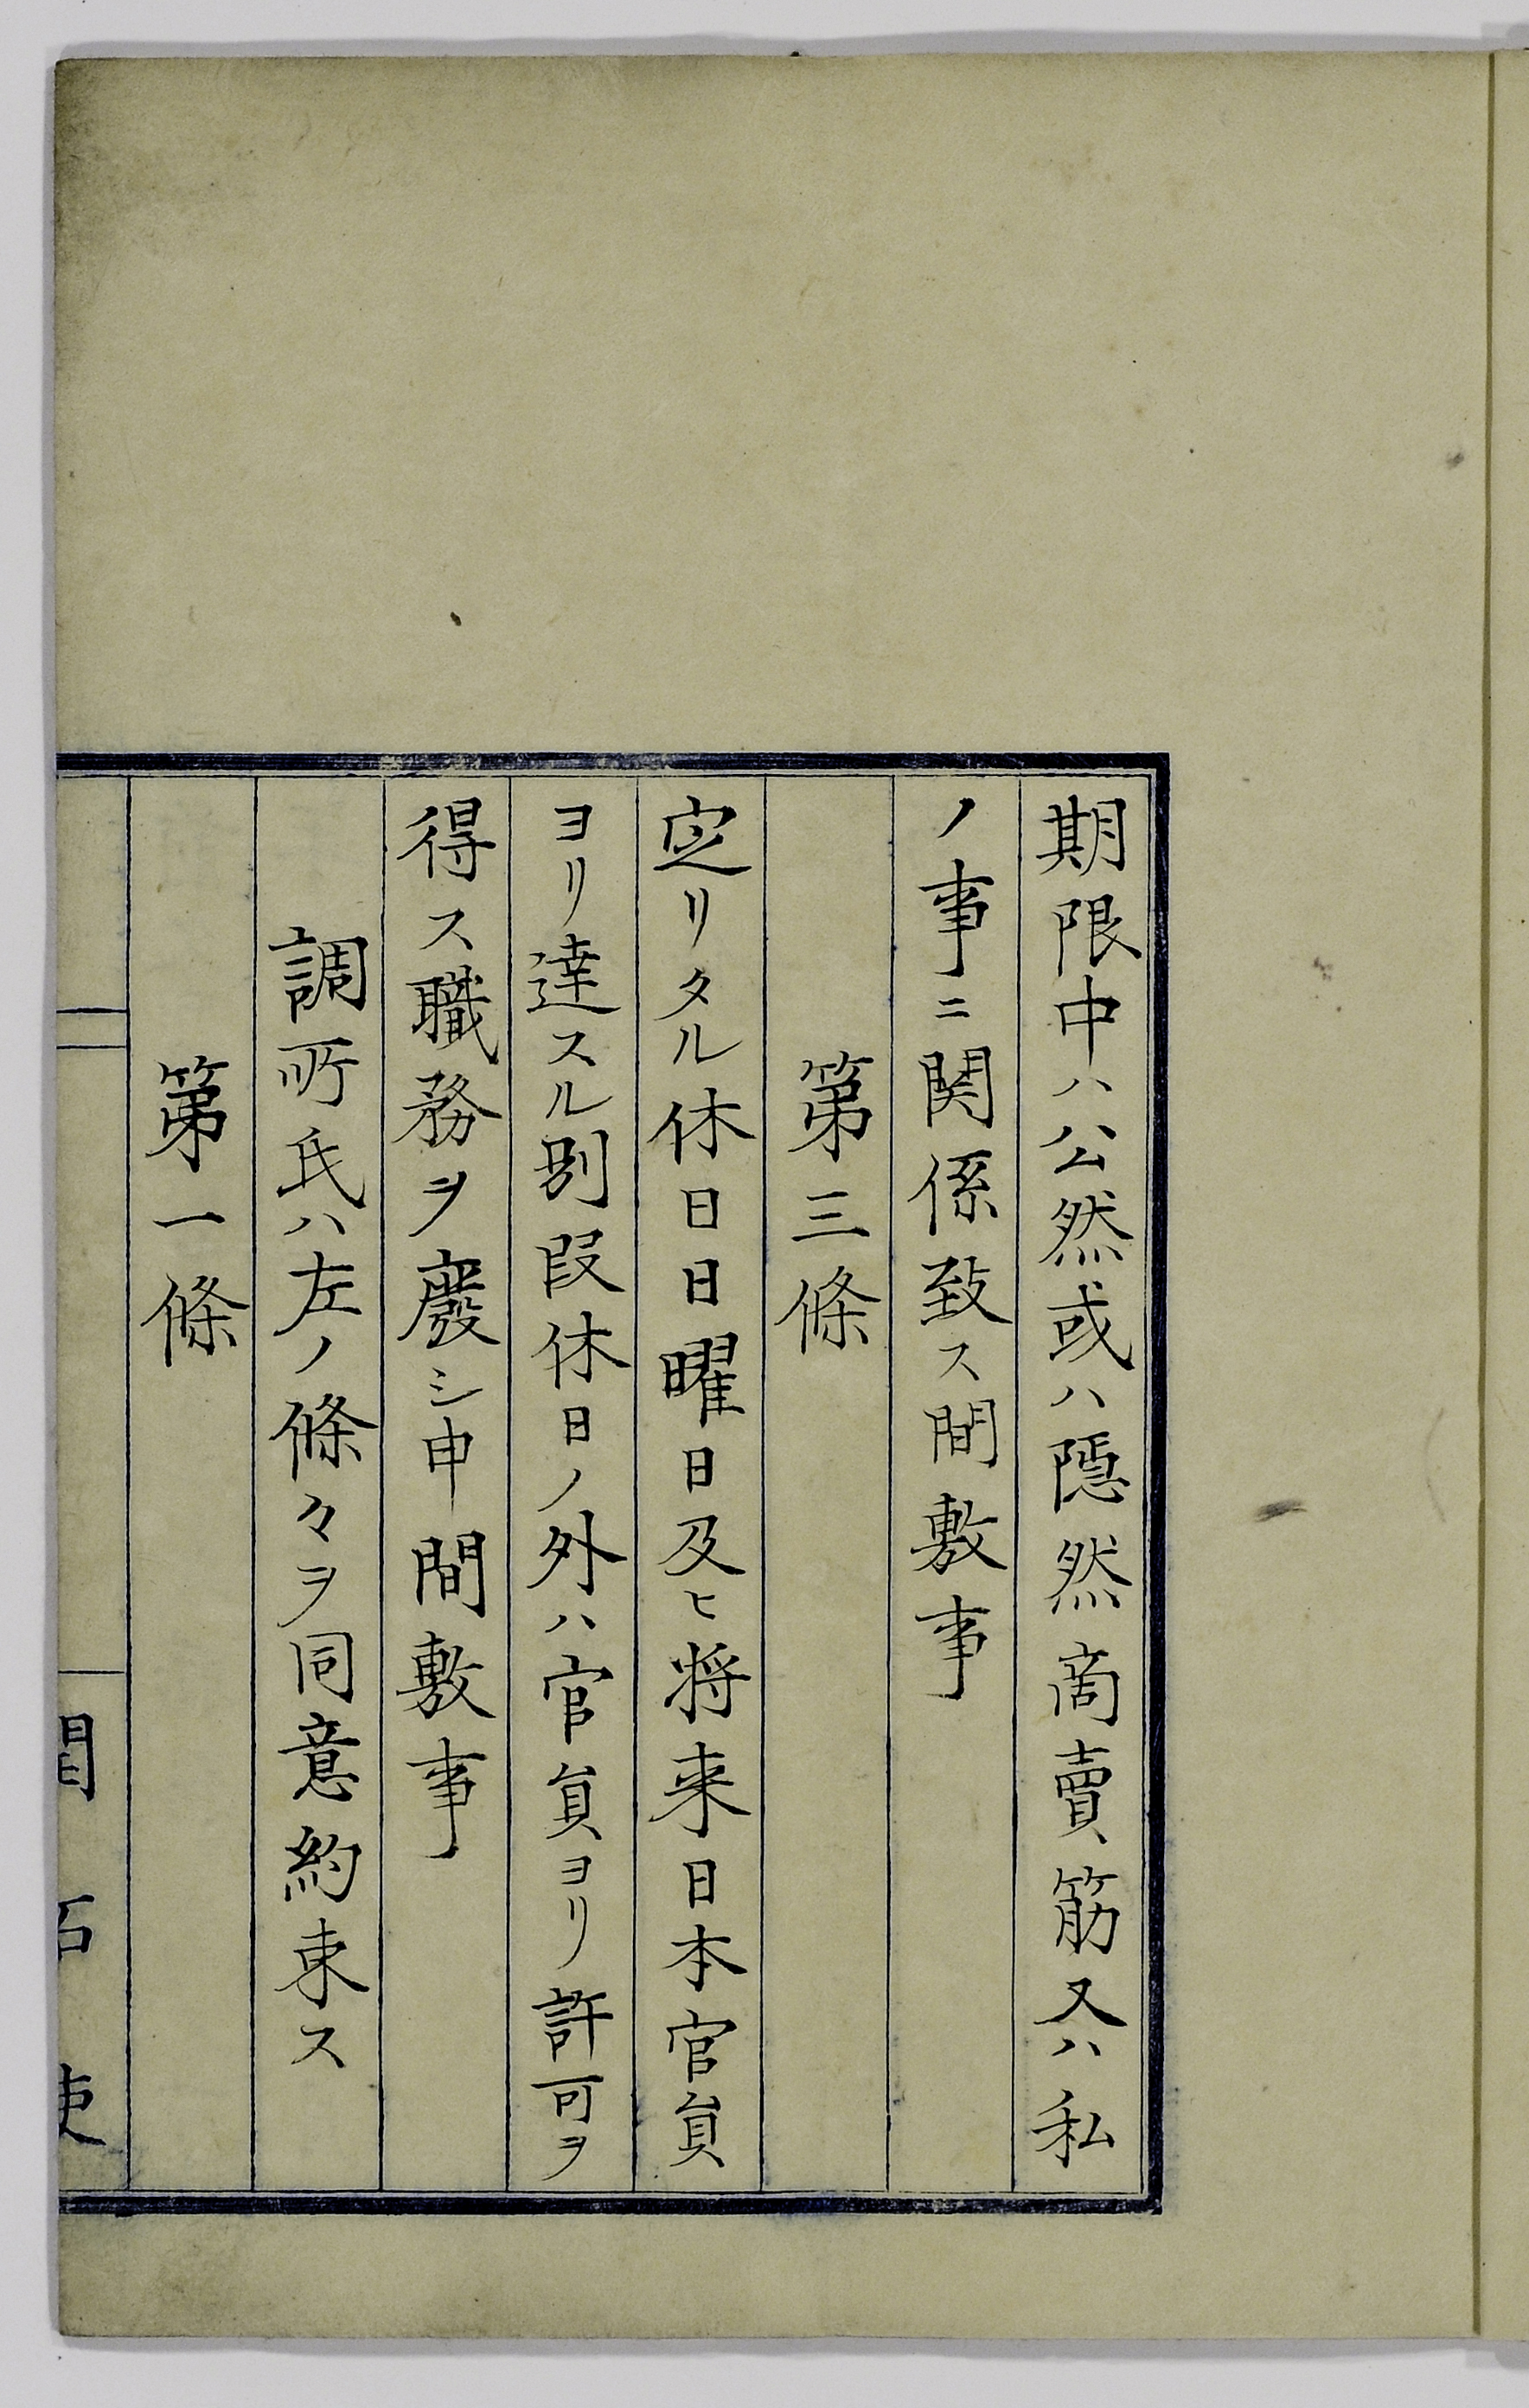 期限中ハ公然或ハ隠然商賣筋又ハ私
ノ事ニ関係致ス間敷事
第三條
定リタル休日日曜日及ヒ将来日本官員
ヨリ達スル別段休日ノ外ハ官員ヨリ許可ヲ
得ス職務ヲ廢シ申間敷事
調所氏ハ左ノ條々ヲ同意約束ス
第一條
開拓使